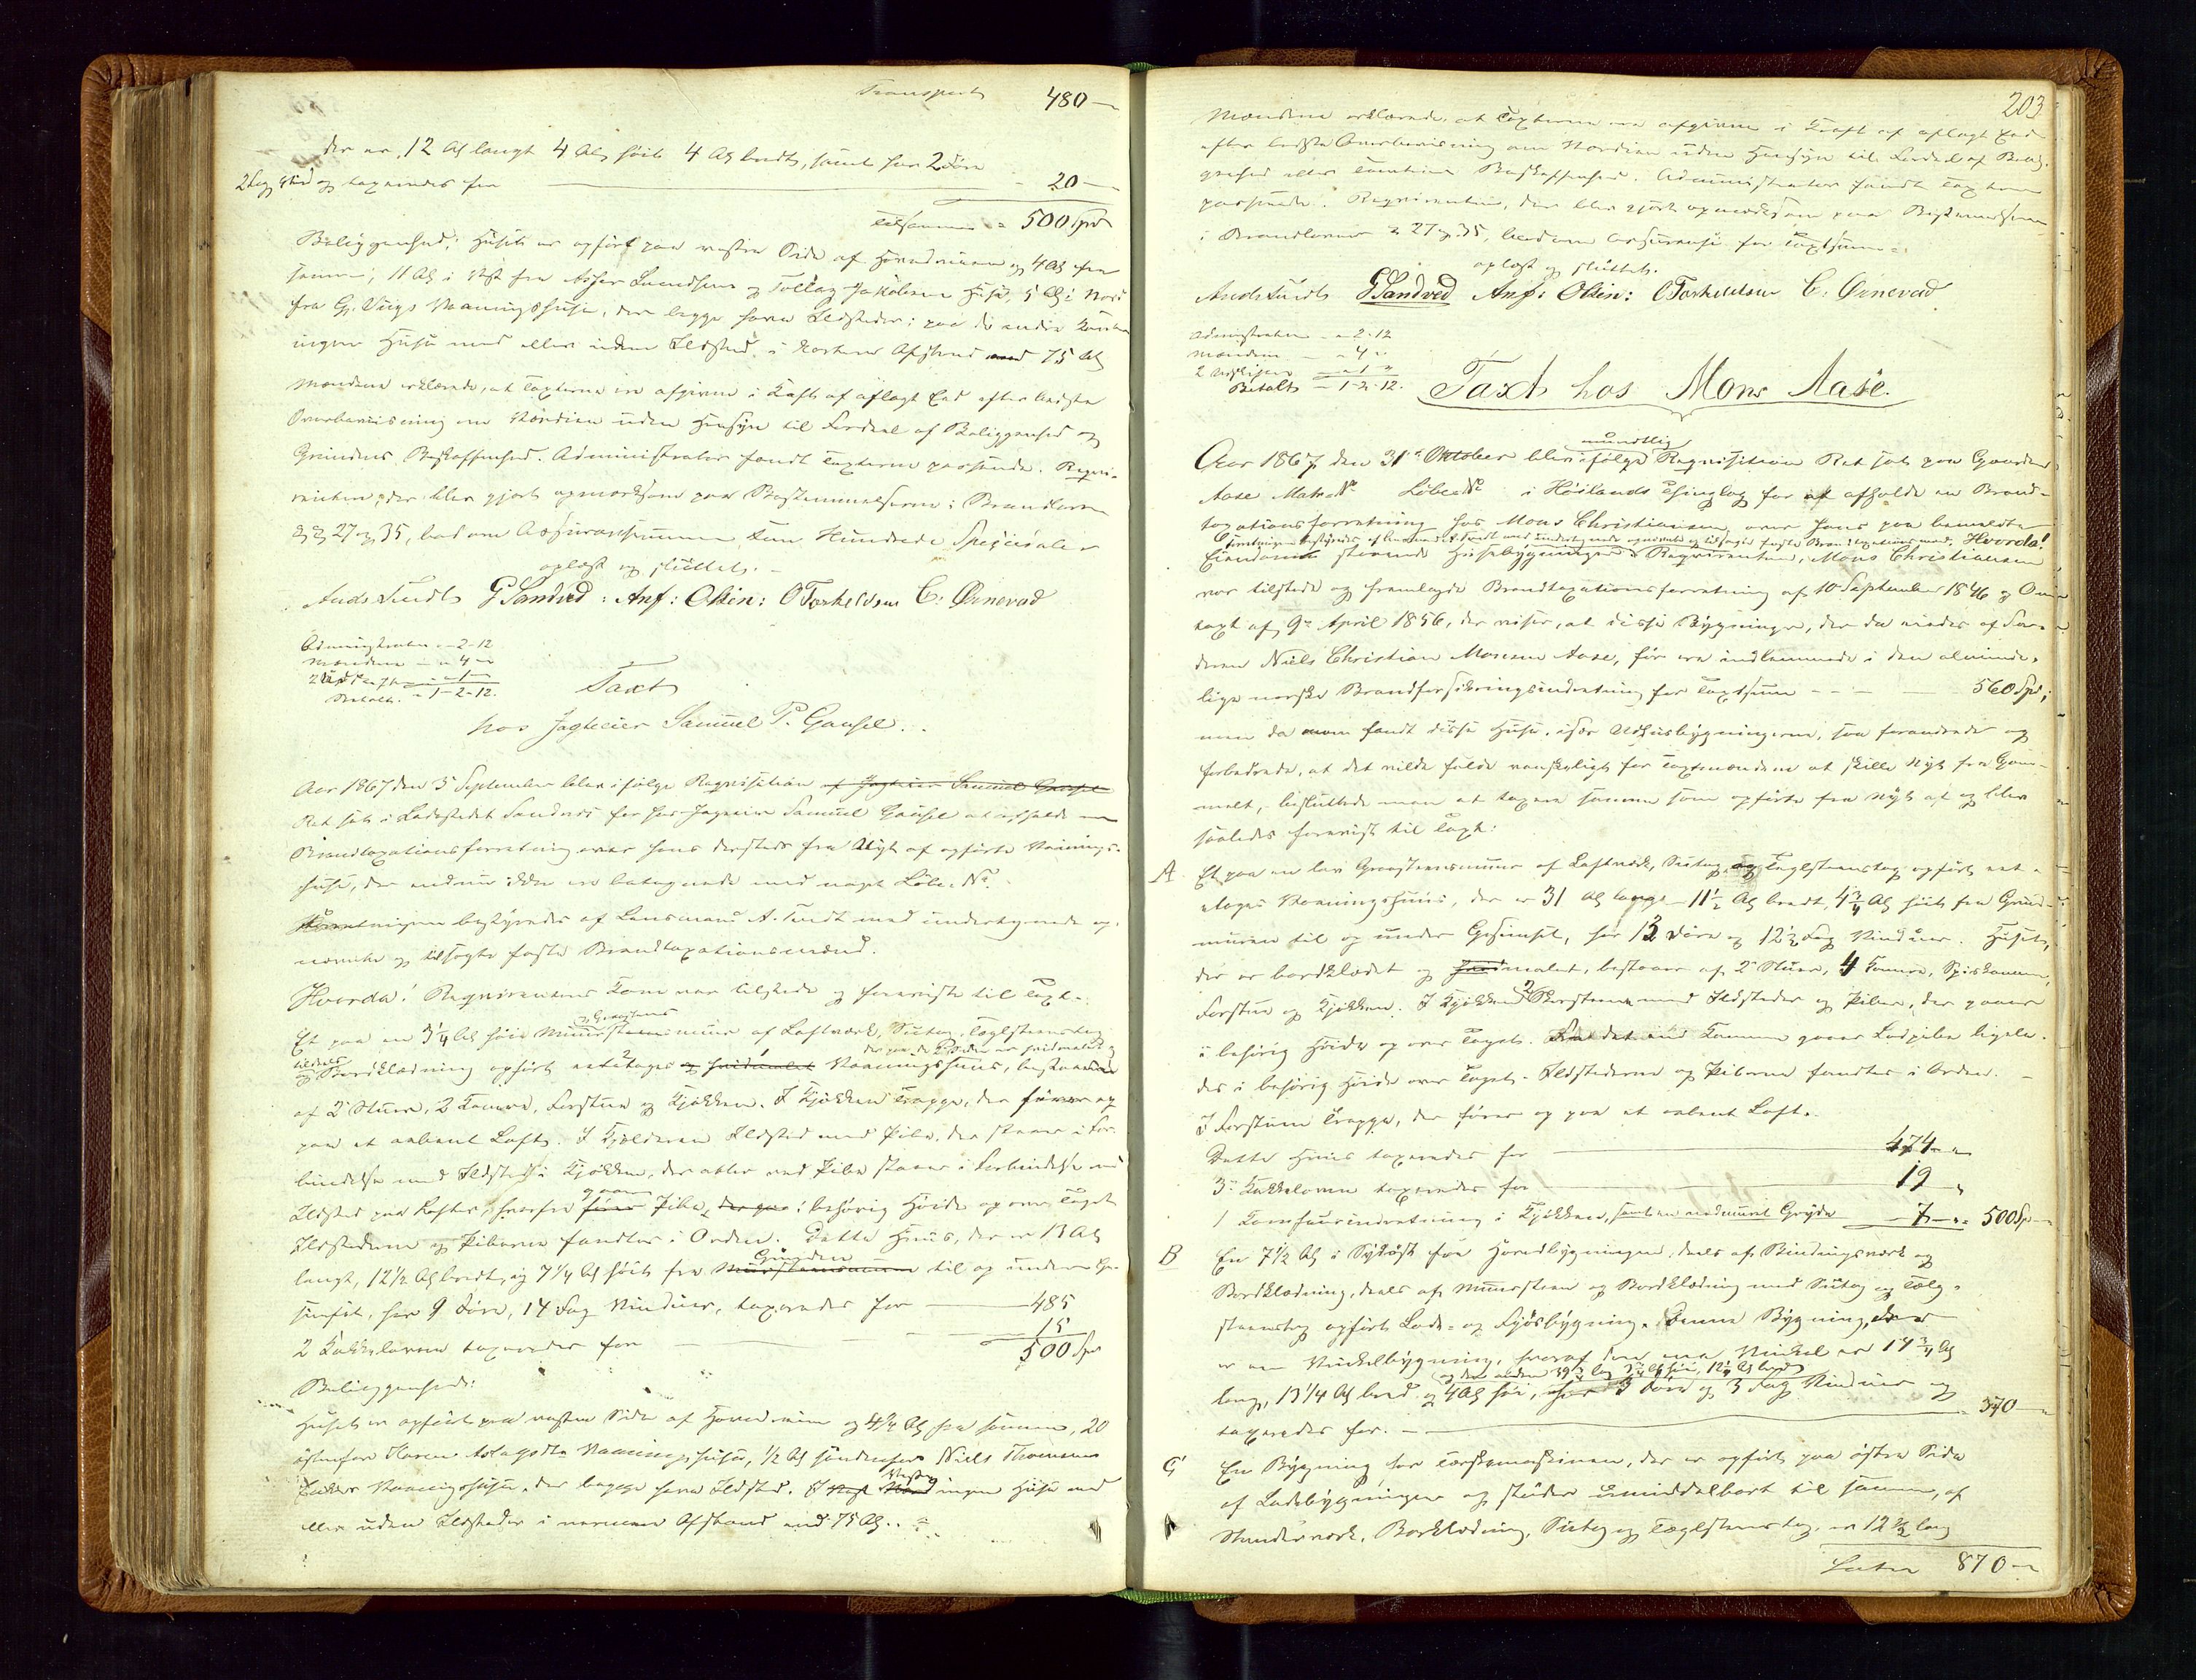 Transport 480 —
der er 12 Al langt 4 Al høit 4 Al bredt, samt har 2 Døre
2 Fag Vind og taxeredes for — 20 —
tilsammen = 500 Spd
Beliggenhed: Huset er opført paa vestre Side af Hovedveien og 4 Al fra
samme, 11 Al i Vest fra Asser Lauridsens og Tollag Jakobsens Huse, 5 Al i Nord
fra G. Viigs Vaaningshuse, der begge have Ildsteder; paa de andre Kanter
ingen Huse med eller uden Ildsted i kortere Afstand end 75 Al
Mændene erklærede, at Taxterne ere afgivne i Kraft af aflagt Eed efter bedste
Overbeviisning om Værdien uden Hensyn til Fordeel af Beliggenhed og
Grundens Beskaffenhed. Administrator fandt Taxterne passende. Reqvi-
renten, der blev gjort opmærksom paa Bestemmelserne i Brandloven
§§ 27 og 35, bad om Assurancesummen fem Hundrede Speciedaler
oplæst og sluttet. -
Ands Tuedt G Sandved : Anf: Olsen: O Torkeldsen C: Ørnevad
Administrator - 2 - 12
Mændene - - 4 -
2 - - 1 -
Betalt. - 1 - 2 - 12.
Taxt
hos Jagteier Samuel P. Gausel.
Aar 1867 den 3 September blev ifølge Reqvisition af Jagteier Samuel Gausel
Ret sat i Ladestedet Sandnæs for hos Jagteier Samuel Gausel at afholde en
Brandtaxationsforretning over hans dersteds fra Nyt af opførte Vaanings-
huse, der endnu ikke ere betegnede med noget Løbe-No.
Forretningen bestyredes af Lensmand A. Tuedt med undertegnede op-
nævnte og tilsagte faste Brandtaxationsmænd.
Hvorda! Reqvirentens Kone var tilstede og foreviste til Taxt:
og Graasteens
Et paa en 3¼ Al høi Muursteensmuur af Laftværk, Sutag, Tæglsteenstag
tildeels der paa de 2 Sider er hvidmalet og
og Bordklædning opført et 2 Etages og hvidmalet Vaaningshuus, bestaaende
af 2 Stuer, 2 Kamre, Forstue og Kjøkken. I Kjøkken Trappe, der fører op
paa et aabent Loft. I Kjelderen Ildsted med Pibe, der staaer i For-
bindelse med Ildsted i Kjøkken, der atter ved Pibe staaer i Forbindelse med
gaaer
Ildsted paa Loftet, hvorfra fører Pibe, der gaa i behørig Høide op over Taget
Ildstederne og Piberne fandtes i Orden. Dette Huus, der er 13 Al
Grunden
langt, 12½ Al bredt, og 7¼ Al høit fra Muursteensmuren til op under Ge-
simset, har 9 Døre, 14 Fag Vinduer, taxeredes for — 485
2 Kakkelovne taxeredes for — 15
500 Spd
Beliggenhed:
Huset er opført paa vestre Side af Hovedveien og 4¼ Al fra samme, 20
østenfor Maren Vaaningshuse, ½ Al søndenfor Niels Thomsens
Vesten
Enkes Vaaningshuse, der begge have Ildsted. I Vest Nord ingen Huse med
eller uden Ildsteder i nærmere Afstand end 75 Al.
203
Mændene erklærede, at Taxterne ere afgivne i Kraft af aflagt Eed
efter bedste Overbeviisning om Værdien uden Hensyn til Fordeel af Belig-
genhed eller Tomtens Beskaffenhed. Administrator fandt Taxterne
passende. Reqvirenten, der blev gjort opmærksom paa Bestemmelserne
i Brandloven § 27 og 35, bad om Assurance for Taxtsummen
oplæst og sluttet.
Ands Tuedt G Sandved Anf: Olsen: O Torkeldsen C: Ørnevad
Administrator - 2 - 12
Mændene - - 4 -
2 - - 1 -
Betalt - 1 - 2 - 12.
Taxt hos Mons Aase.
mundtlig
Aar 1867 den 31te Oktober blev ifølge Reqvisition Ret sat paa Gaarden
Aase Matr. No Løbe No i Høilands Thinglag for at afholde en Brand-
taxationsforretning hos Mons Christiansen over hans paa bemeldte
Forretningen bestyredes af Lensmand A. Tuedt med undertegnede opnævnte og tilsagte faste Brandtaxationsmænd. Hvorda!
Eiendom staaende Huusbygninger. Reqvirenten, Mons Christiansen
var tilstede og fremlagde Brandtaxationsforretning af 10 September 1846 og Om-
taxt af 9de April 1856, der viser, at disse Bygninger, der da eiedes af Fa-
deren Niels Christian Monsen Aase, før ere indlemmede i den alminde-
lige norske Brandforsikringsindretning for Taxtsum - - - 560 Spd;
men da man fandt disse Huse, især Udhuusbygningerne, saa forandrede og
forbedrede, at det vilde falde vanskeligt for Taxtmændene at skille Nyt fra Gam-
melt, besluttede man at taxere samme som opførte fra Nyt af og blev
saaledes forevist til Taxt:
A Et paa en lav Graasteensmuur af Laftværk, Sutag og Tæglsteenstag opført een-
etages Vaaningshuus, der er 31 Al langt - 11½ Al bredt, 4¾ Al høit fra Grund-
muren til op under Gesimset, har 13 Døre og 12½ Fag Vinduer. Huset,
der er bordklædet og hvid malet, bestaaer af 2 Stuer, 4 Kamre, Spiskammer,
Forstue og Kjøkken. I Kjøkken 2 Skorstene med Ildsteder og Piber, der gaaer
i behørig Høide op over Taget. Fra det ene Kammer gaaer Lodpibe ligele-
des i behørig Høide over Taget. Ildstederne og Piberne fandtes i Orden. -
I Forstuen Trappe, der fører op paa et aabent Loft.
Dette Huus taxeredes for — 474 -
3de Kakkelovne taxeredes for — 19 -
1 Komfurindretning i Kjøkken, samt en nedmuret Gryde — 7 — = 500 Sp —
B En 7½ Al i Sydøst fra Hovedbygningen, deels af Bindingsværk og
Bordklædning, deels af Muursteen og Bordklædning med Sutag og Tægl-
steenstag opført Lade- og Fjøsbygning. Denne Bygning, der er
er en Vinkelbygning, hvoraf den ene Vinkel er 17¾ Al
og den anden 39¾ lang, 3¾ Al høi, 12¼ Al bred
lang, 13¼ Al bred og 4 Al høi, har 9 Døre og 3 Fag Vinduer og
taxeredes for. — 370 —
C En Bygning for Tærskemaskinen, der er opført paa østre Side
af Ladebygningen og støder umiddelbart til samme, af
Stenderværk, Bordklædning, Sutag og Tæglsteenstag, er 12½ lang
Latus 870 —